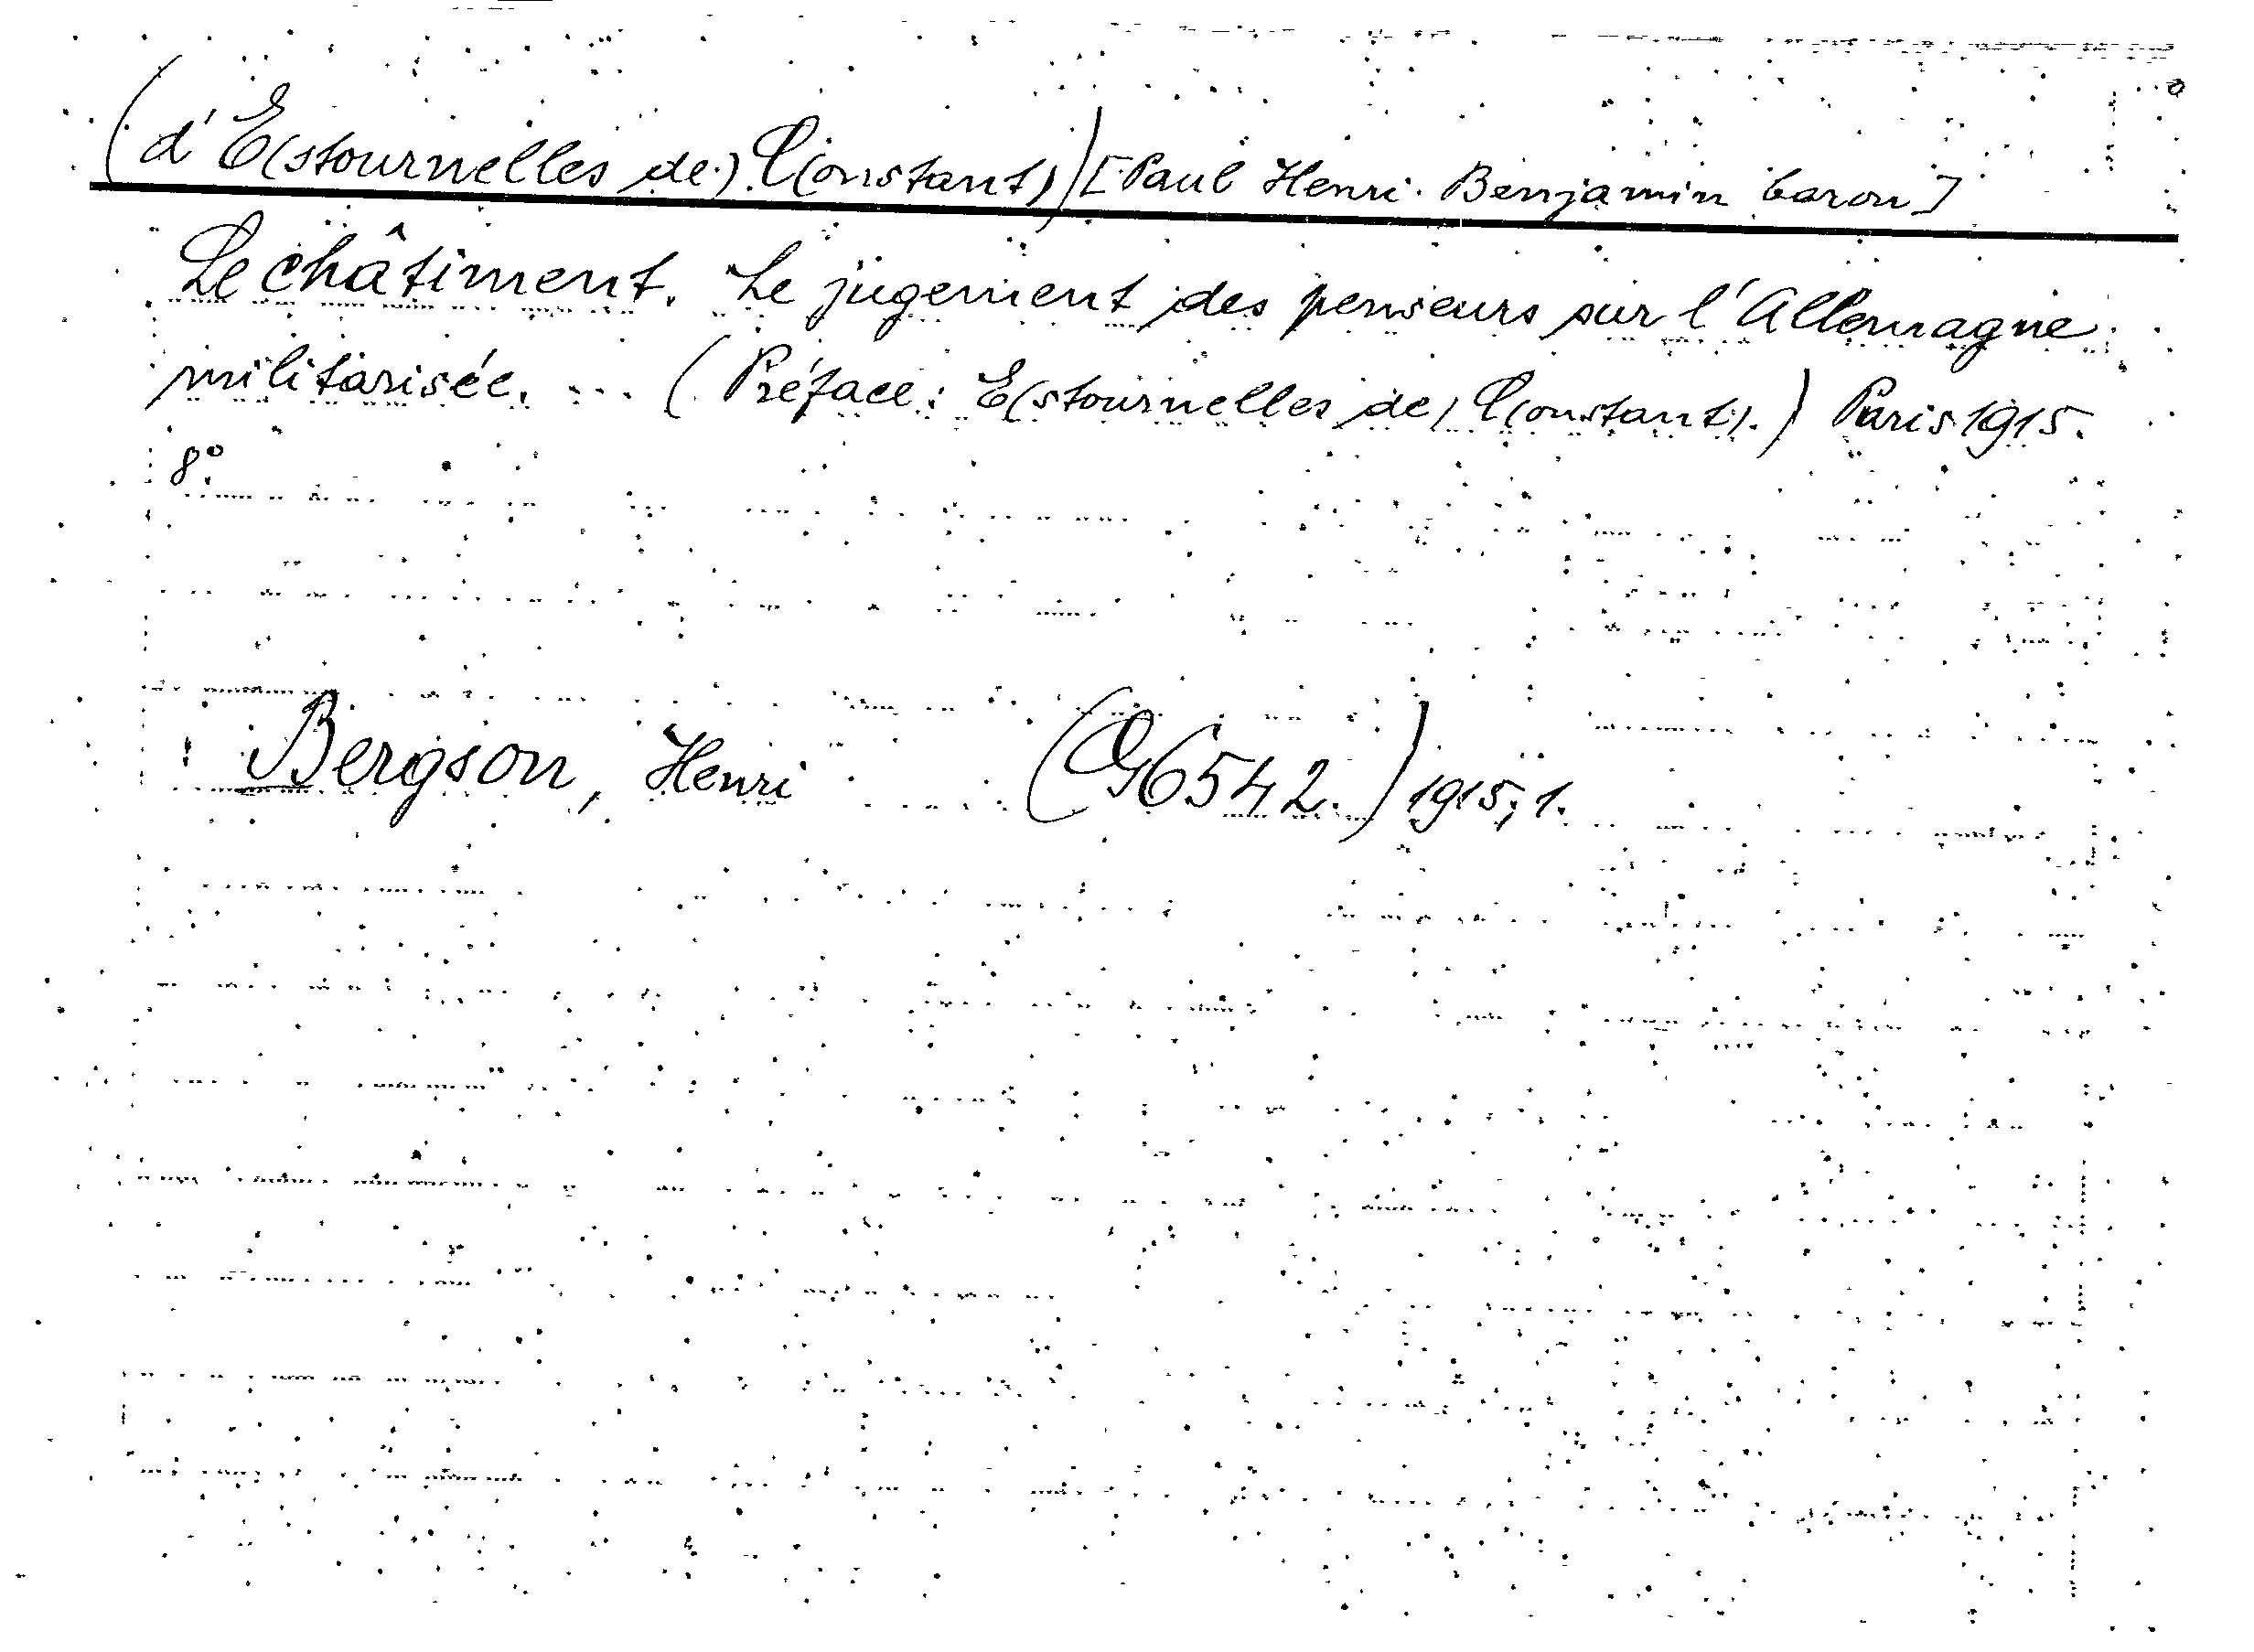 (d'E(stournelles de) C(onstant)) [Paul Henri Benjamin baron]
Le châtiment. Le jugement des penseurs sur l'Allemagne
militarisée. ... (Préface: E(stournelles de) C(onstant).) Paris 1915.
8°.
Bergson, Henri (G6542.) 1915; 1.